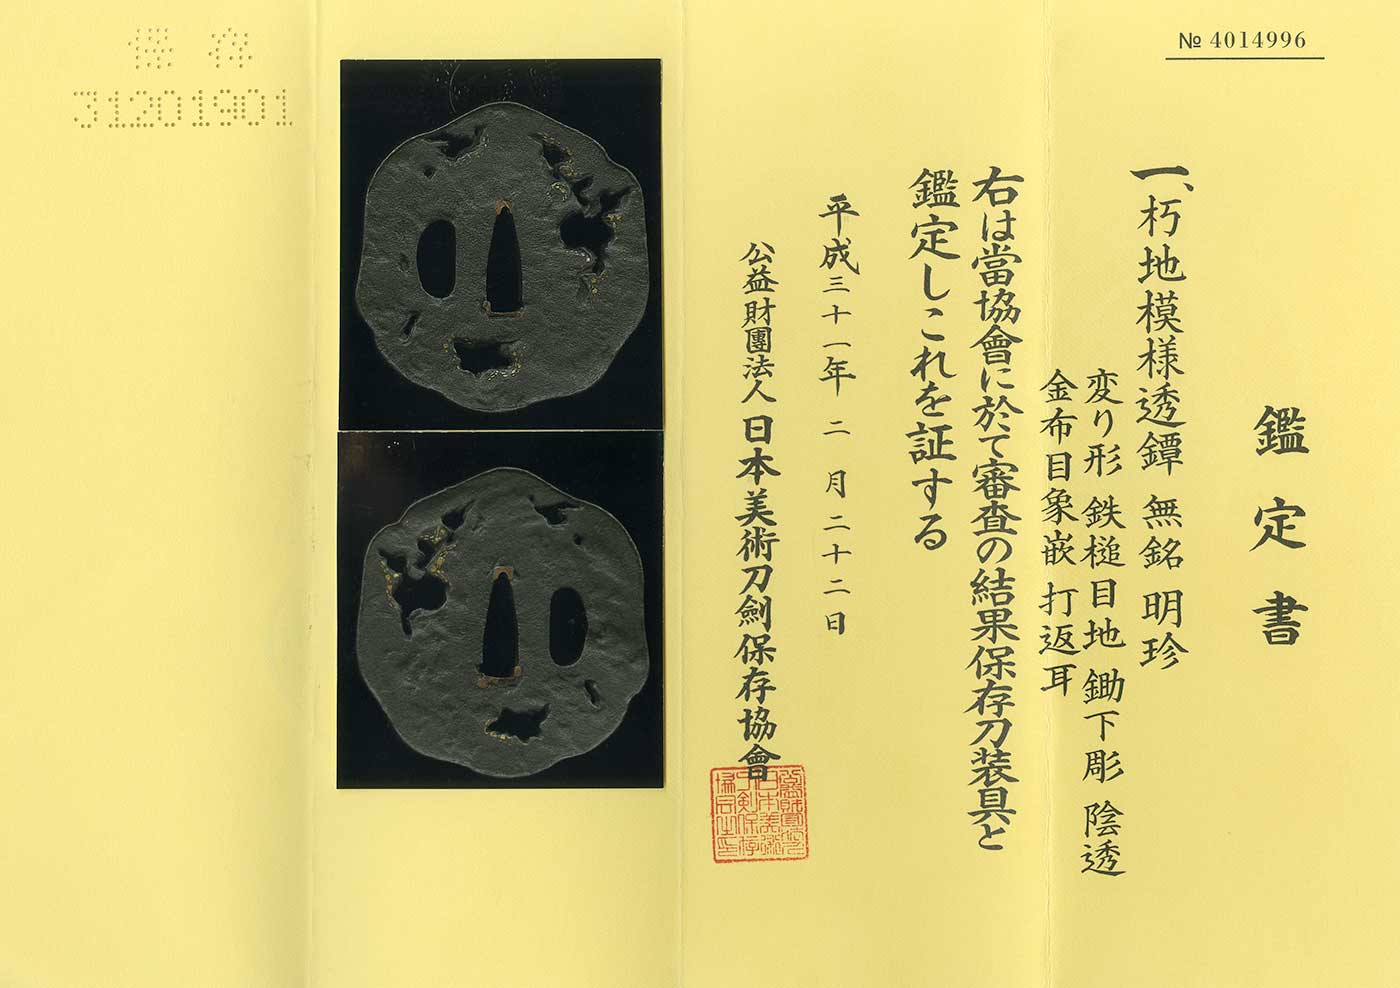 № 4014996
鑑定書
一、朽地模様透鐔 無銘 明珍
変り形 鉄槌目地 鋤下彫 陰透
金布目象嵌 打返耳
右は當協會に於て審査の結果保存刀装具と
鑑定しこれを証する
平成三十一年 二 月 二十二日
公益財團法人 日本美術刀劍保存協會
保存
31201901